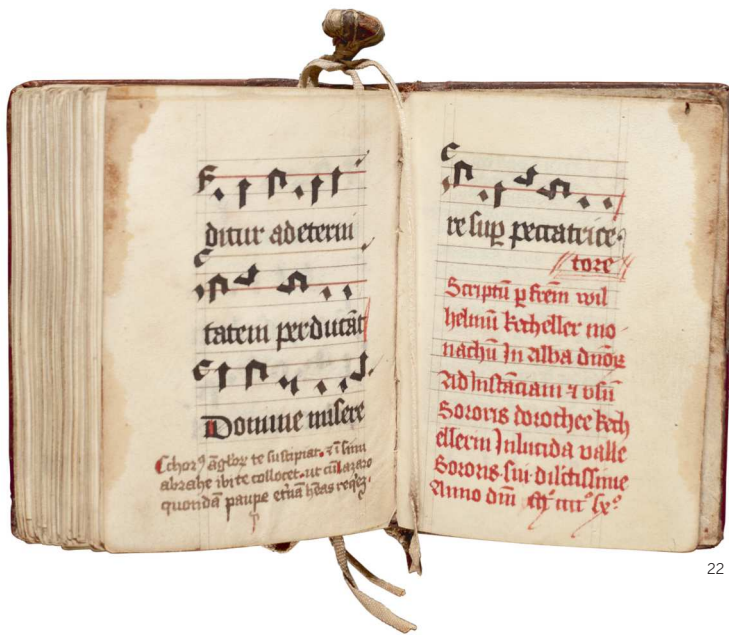 ditur ad eterni
tatem perducāt
Domine misere
Chorꝰ āgloꝝ te suscipiat. ⁊ ī sinu
abrahe ibi te collocet. ut cū lazaro
quondā paupe etnā hēas reqꝫ.
re sup̱ peccatrice.
tore
Scriptū ꝑ frēm wil
helmū kecheller mo
nachū In alba dnōꝝ
Ad Instāciam ⁊ vsū
Sororis dorothee kech
ellerin In lucida valle
Sororis sui dilctissime
Anno dn̄i mͦ ccccͦ lxͦ
22